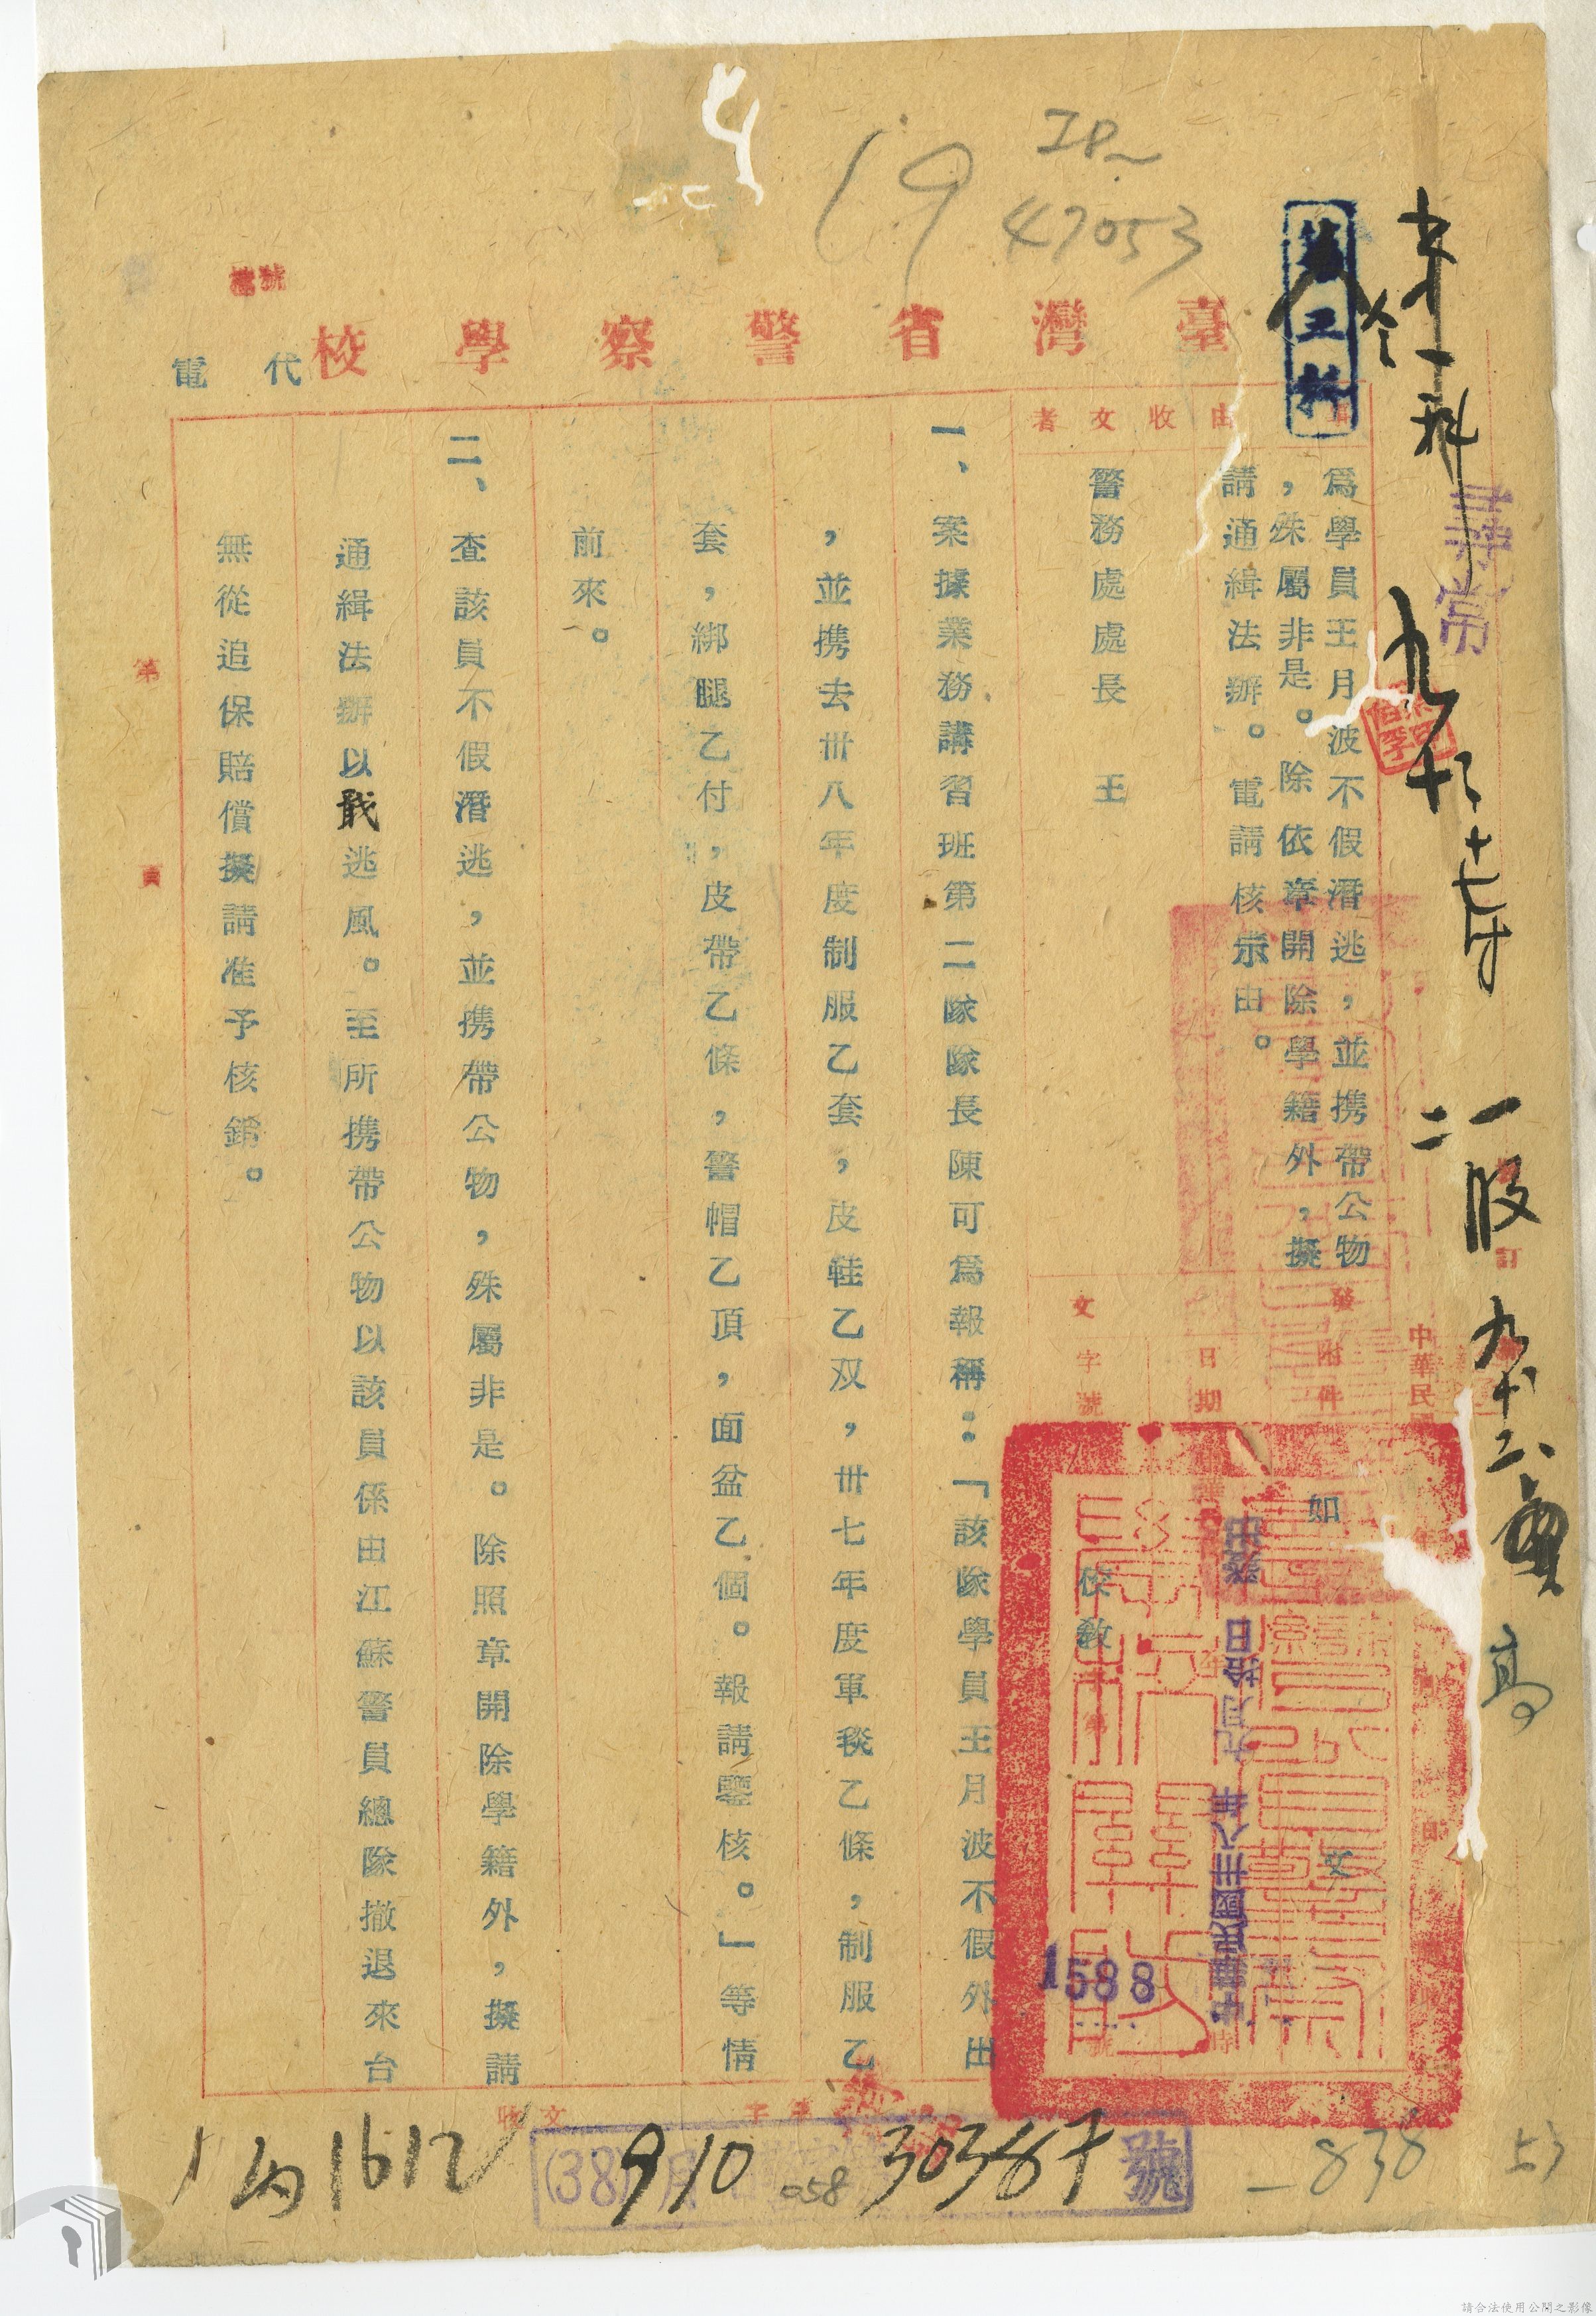 19
47053
檔號
臺灣省警察學校
代電
第三科
第一科
尋常
事由
為學員王月波不假潛逃，並携帶公物
，殊屬非是。除依章開除學籍外，擬
請通緝法辦。電請核示由。
收文者
警務處處長 王
發文
附件
如文
日期
中華民國卅八年九月拾日
發出
字號
校教字第1588號
中華民國
一、案據業務講習班第二隊隊長陳可為報稱：「該隊學員王月波不假外出
，並携去卅八年度制服乙套，皮鞋乙双，卅七年度軍毯乙條，制服乙
套，綁腿乙付，皮帶乙條，警帽乙頂，面盆乙個。報請鑒核。」等情
前來。
二、查該員不假潛逃，並携帶公物，殊屬非是。除照章開除學籍外，擬請
通緝法辦以戢逃風。至所携帶公物以該員係由江蘇警員總隊撤退來台
無從追保賠償擬請准予核銷。
第
頁
一股
收文
字
(38)月
910
058
30387
號
1612
838
53
請合法使用公開之影像